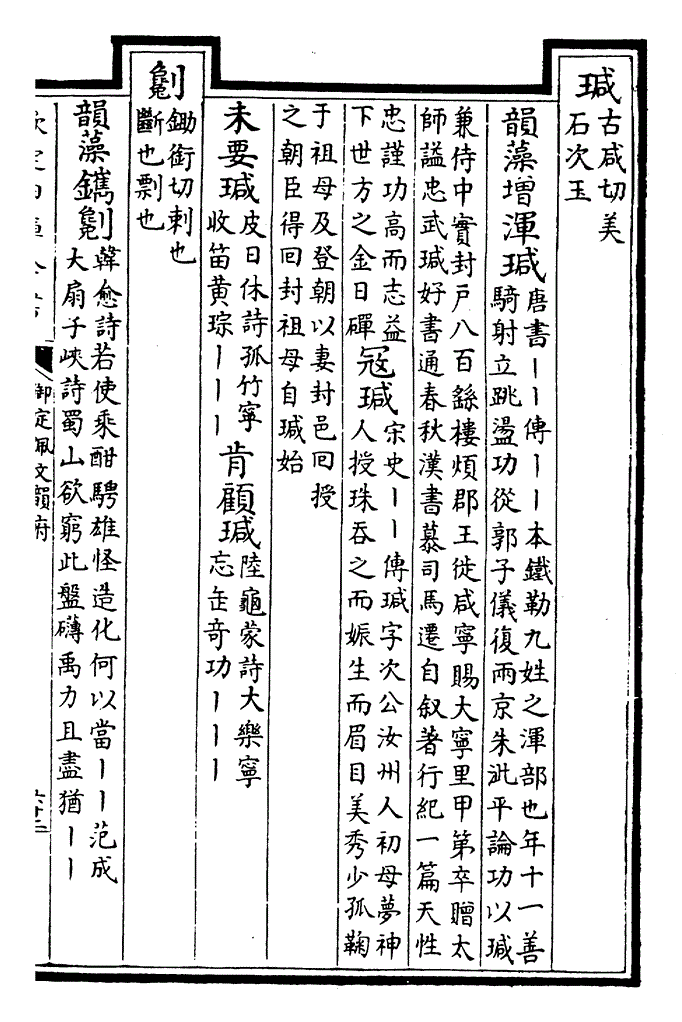 瑊
古咸切美
石次玉
韻藻增渾瑊
唐書丨丨傳丨丨本鐵勒九姓之渾部也年十一善
騎射立跳盪功從郭子儀復兩京朱泚平論功以瑊
兼侍中實封戶八百餘樓煩郡王徙咸寧賜大寧里甲第卒贈太
師謚忠武瑊好書通春秋漢書慕司馬遷自叙著行紀一篇天性
忠謹功高而志益
下世方之金日磾
寇瑊
宋史丨丨傳瑊字次公汝州人初母夢神
人授珠吞之而娠生而眉目美秀少孤鞠
于祖母及登朝以妻封邑回授
之朝臣得回封祖母自瑊始
未要瑊
皮日休詩孤竹寧
收笛黃琮丨丨丨
肯顧瑊
陸龜蒙詩大樂寧
忘缶奇功丨丨丨
劖
鋤銜切刺也
斷也剽也
韻藻鑴劖
韓愈詩若使乘酣騁雄怪造化何以當丨丨范成
大扇子峽詩蜀山欲窮此盤礴禹力且盡猶丨丨
御定佩文韻府